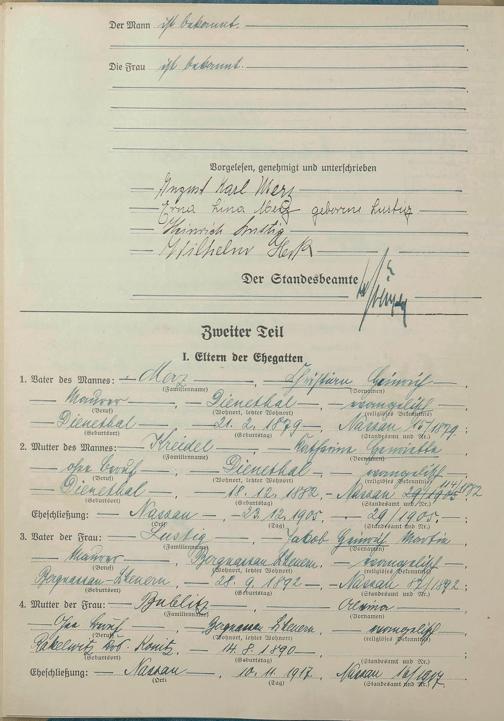 Der Mann ist bekannt.
Die Frau ist bekannt.
Vorgelesen, genehmigt und unterschrieben
August Karl Merz
Erna Lina Merz geborene Lustig
Heinrich Lustig
Wilhelm
Der Standesbeamte
Zweiter Teil
I. Eltern der Ehegatten
1. Vater des Mannes: Merz, Christian Heinrich
(Familienname) (Vornamen)
Maurer, Dienethal, evangelisch
(Beruf) (Wohnort, letzter Wohnort) (religiöses Bekenntnis)
Dienethal, 21. 2. 1879, Nassau /1879
(Geburtsort) (Geburtstag) (Standesamt und Nr.)
2. Mutter des Mannes: Kreidel, Katharine Henriette
(Familienname) (Vornamen)
ohne Beruf, Dienethal, evangelisch
(Beruf) (Wohnort, letzter Wohnort) (religiöses Bekenntnis)
Dienethal, 18. 12. 1882, Nassau
(Geburtsort) (Geburtstag) (Standesamt und Nr.)
Eheschließung: Nassau, 23. 12. 1905, 29/1905
(Ort) (Tag) (Standesamt und Nr.)
3. Vater der Frau: Lustig, Jakob Heinrich Martin
(Familienname) (Vornamen)
Maurer, Bergnassau-Scheuern, evangelisch
(Beruf) (Wohnort, letzter Wohnort) (religiöses Bekenntnis)
Bergnassau-Scheuern, 28. 9. 1892, Nassau 57/1892
(Geburtsort) (Geburtstag) (Standesamt und Nr.)
4. Mutter der Frau: Bublitz,
(Familienname) (Vornamen)
ohne Beruf, Bergnassau Scheuern, evangelisch
(Beruf) (Wohnort, letzter Wohnort) (religiöses Bekenntnis)
Konitz, 14. 8. 1890
(Geburtsort) (Geburtstag) (Standesamt und Nr.)
Eheschließung: Nassau, 10. 11. 1917, Nassau
(Ort) (Tag) (Standesamt und Nr.)